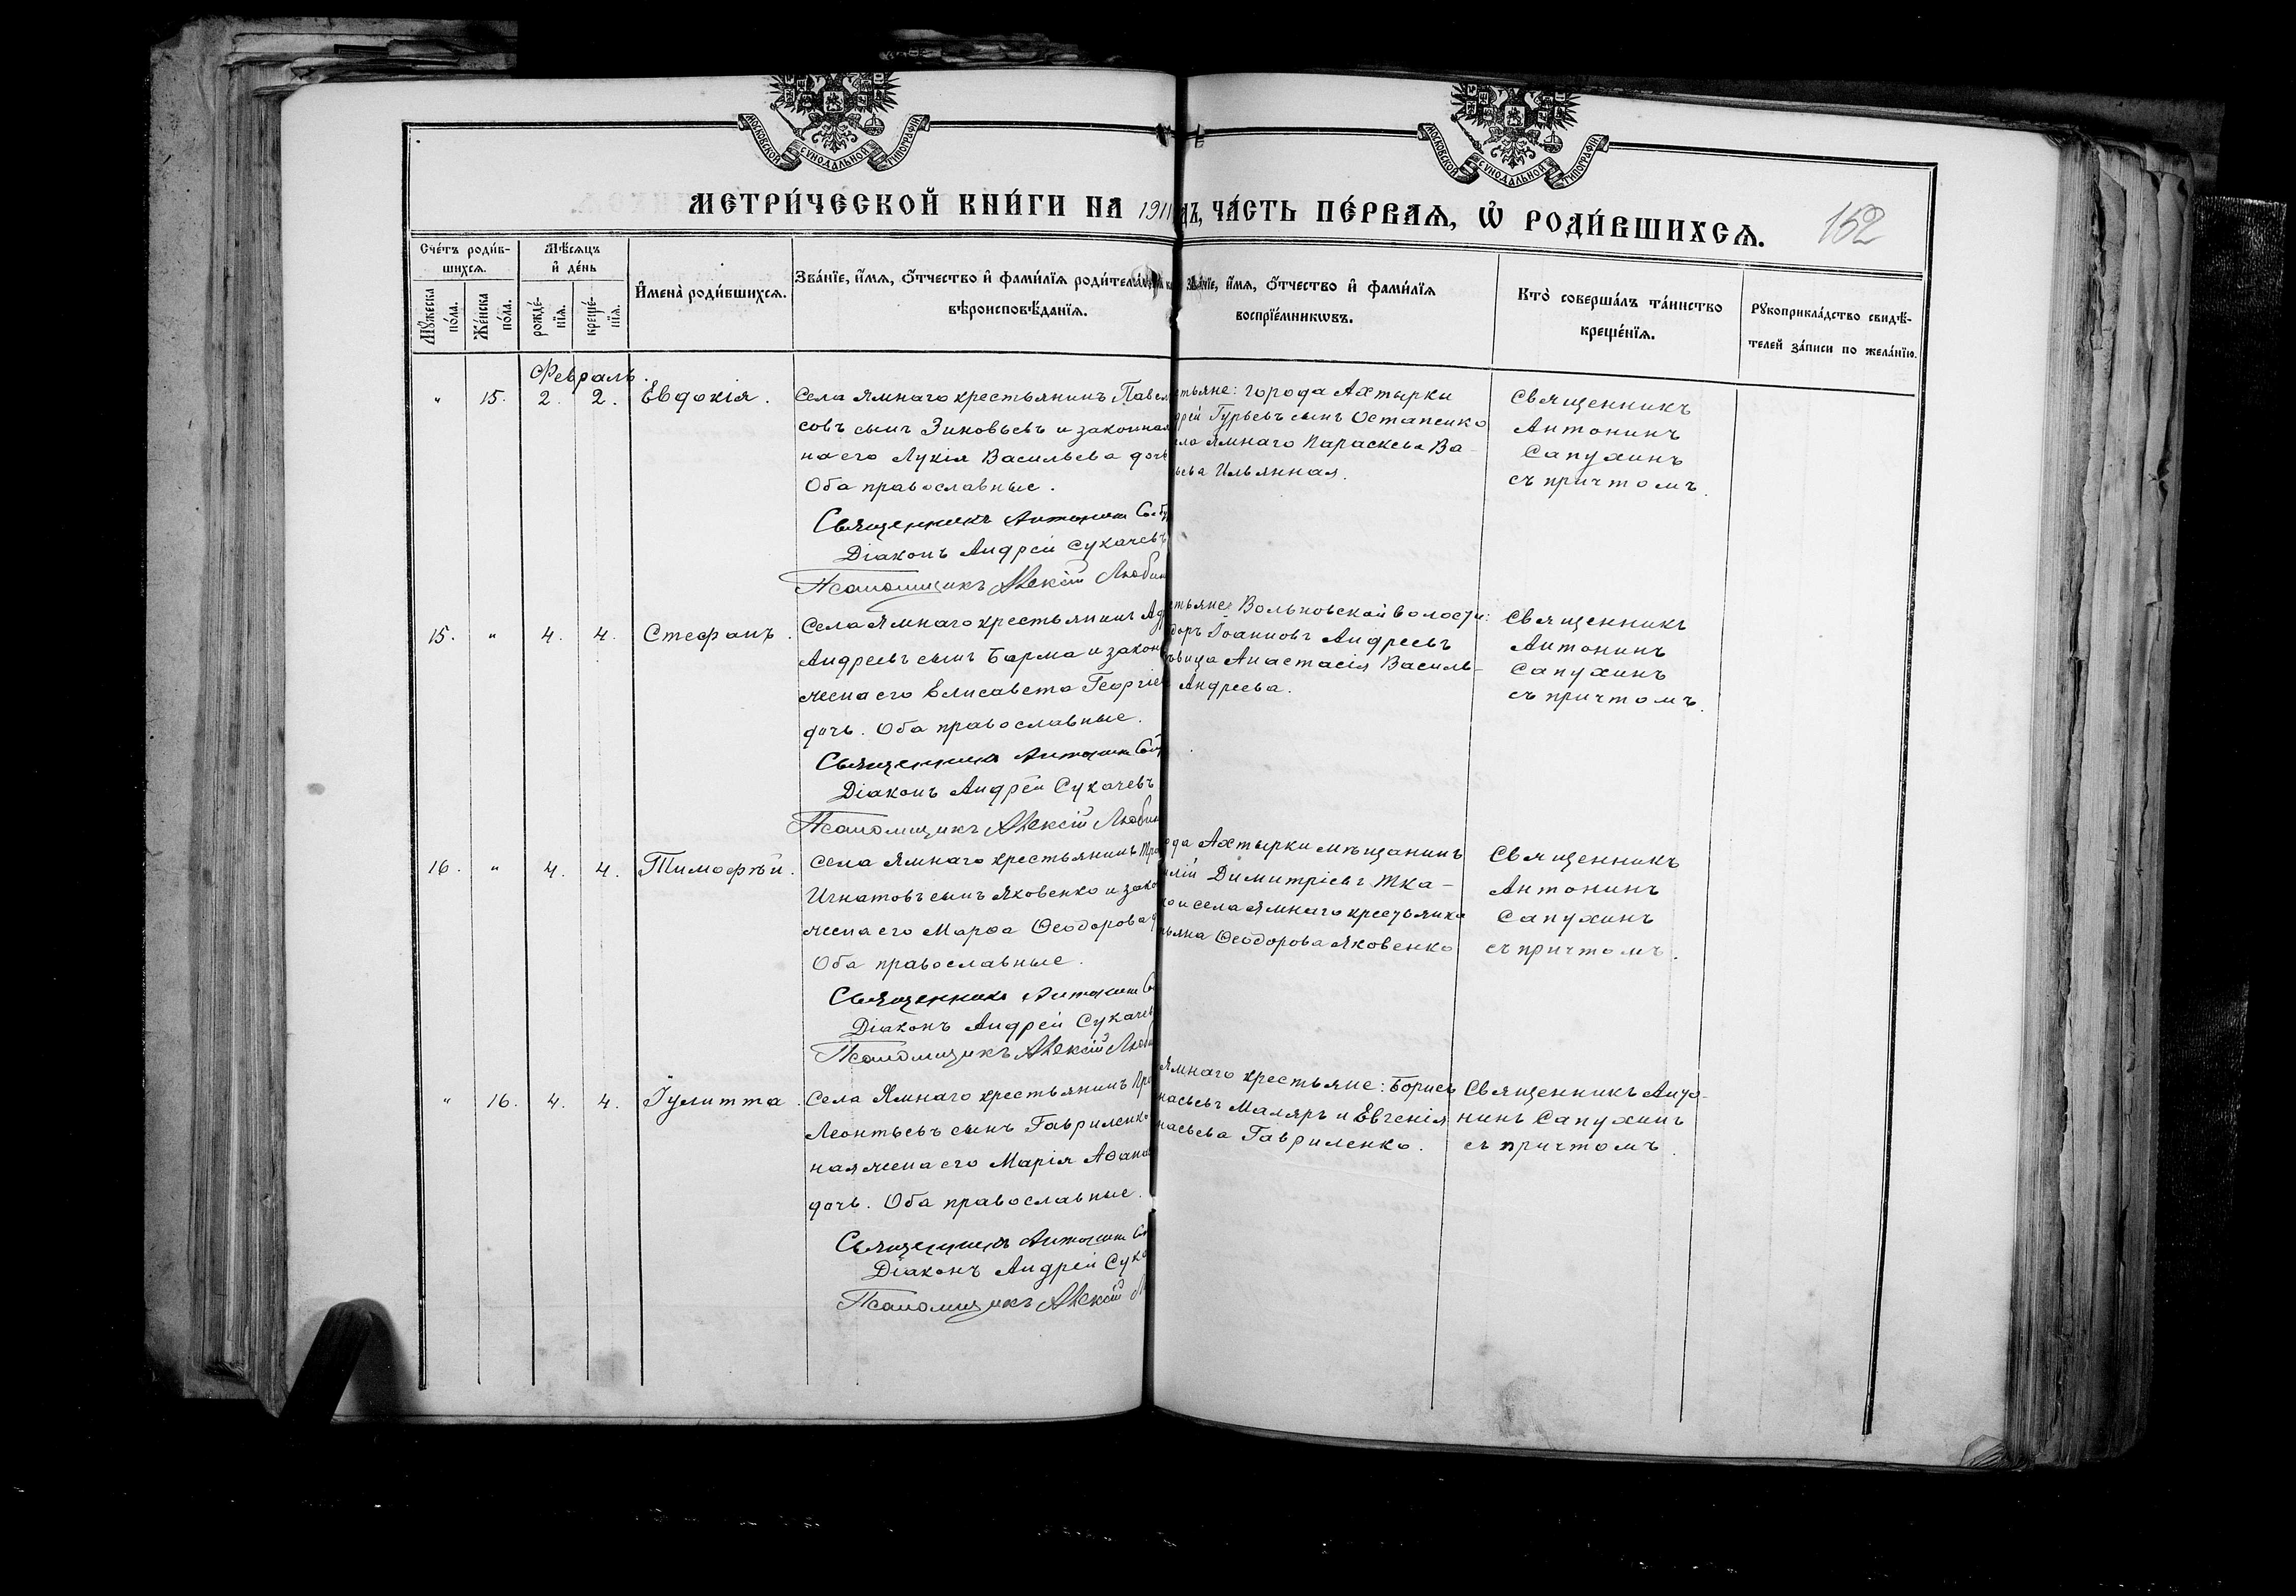 МОСКОВСКОЙ СУНОДАЛЬНОЙ ТИПОГРАФІИ
МОСКОВСКОЙ СУНОДАЛЬНОЙ ТИПОГРАФІИ
МЕТРИ́ЧЕСКОЙ КНИ́ГИ НА 1911
ДЪ, ЧА́СТЬ ПЕ́РВАЯ, Ѡ РОДИ́ВШИХСЯ.
152
Сче́тъ роди́в-
шихся.
Мѣ́сяцъ
и҆ де́нь
Мꙋ́жеска
по́ла.
Же́нска
по́ла.
рожде́-
нїя.
креще́-
нїя.
И҆мена̀ роди́вшихся.
Зва́нїе, и҆́мя, ѻ҆́тчество и҆ фами́лїя роди́тел
вѣроисповѣ́данїя.
Зва́нїе, и҆́мя, ѻ҆́тчество и҆ фами́лїя
воспрїе́мникѡвъ.
Кто̀ соверша́лъ та́инство
креще́нїя.
Рꙋкоприкла́дство свидѣ́-
телей за́писи по жела́нїю.
Февраль.
" 15. 2. 2. Евдокія.
Села Ямнаго крестьянинъ Павел
совъ сынъ Зиновьевъ и законная
на его Лукія Васильева дочь
Оба православные.
Священникъ Антонин Сапу
Діаконъ Андрей Сукачевъ
Псаломщикъ Алексій Любин
стьяне: города Ахтырки
дрей Гурьевъ сынъ Остапенко
ела Ямнаго Параскева Ва-
ьева Ильянная.
Священникъ
Антонинъ
Сапухинъ
съ причтомъ.
15. " 4. 4. Стефанъ.
Села Ямнаго крестьянинъ Ад
Андреевъ сынъ Барма и закон
жена его Елисавета Георгіев
дочь. Оба православные.
Священникъ Антонин Сап
Діаконъ Андрей Сукачевъ
Псаломщикъ Алексій Любин
стьяне Вольновской волости:
доръ Іоанновъ Андреевъ
ѣвица Анастасія Василь-
Андреева.
Священникъ
Антонинъ
Сапухинъ
съ причтомъ.
16. " 4. 4. Тимофѣй.
Села Ямнаго крестьянинъ Тро
Игнатовъ сынъ Яковенко и зако
жена его Марѳа Ѳеодорова д
Оба православные.
Священникъ Антонин Са
Діаконъ Андрей Сукачев
Псаломщикъ Алексій Люби
ода Ахтырки мѣщанинъ
илій Димитріевъ Тка-
ко и села Ямнаго крестьянка
ьяна Ѳеодорова Яковенко
Священникъ
Антонинъ
Сапухинъ
съ причтомъ.
" 16. 4. 4. Іулитта.
Села Ямнаго крестьянинъ Про
Леонтьевъ сынъ Гавриленко
ная жена его Марія Аѳана
дочь. Оба православные.
Священникъ Антонин Са
Діаконъ Андрей Сука
Псаломщикъ Алексій Л
Ямнаго крестьяне: Борисъ
насьевъ Маляръ и Евгенія
насьева Гавриленко.
Священникъ Анто-
нинъ Сапухинъ
съ причтомъ.